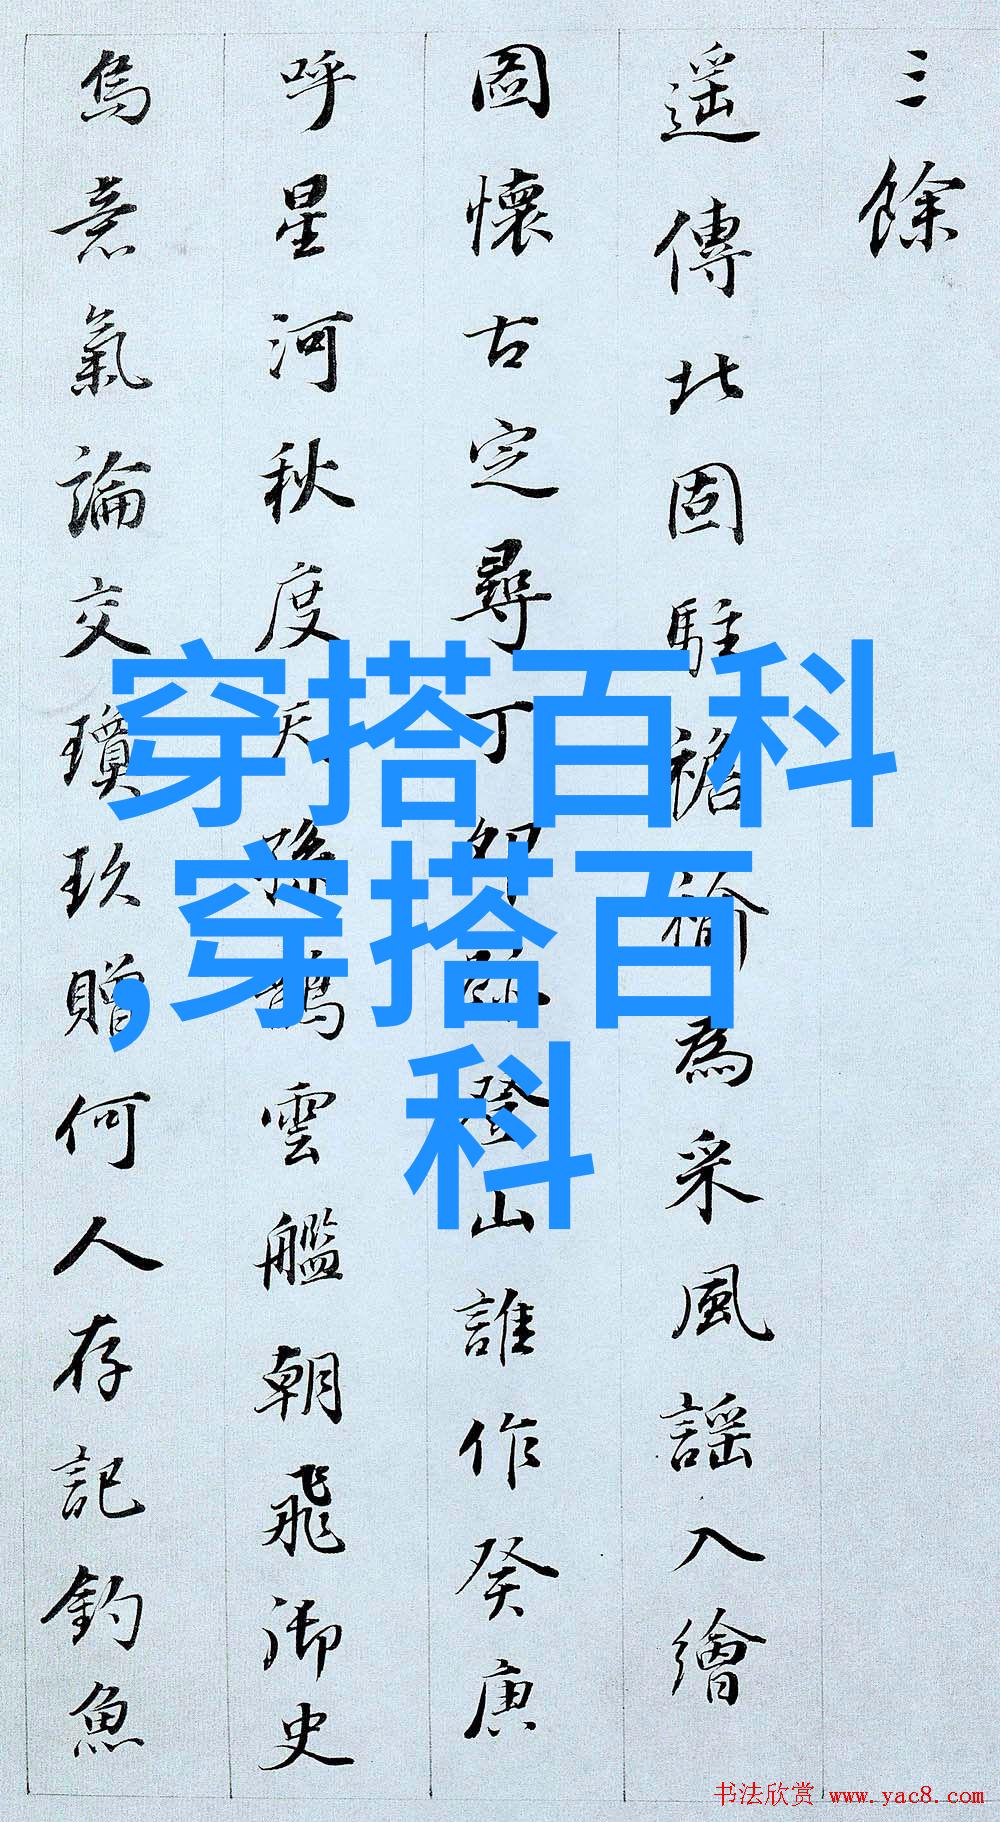 三餘
遥傳北固駐襜褕為采風謡入繪
圖懷古定尋丁卯登山誰作癸庚
呼星河秋度天孫鵲雲艦朝飛御史
烏意氣論交瓊玖贈何人存記釣魚
穿搭百科
,穿搭百
科
书法欣赏 www.yac8.com